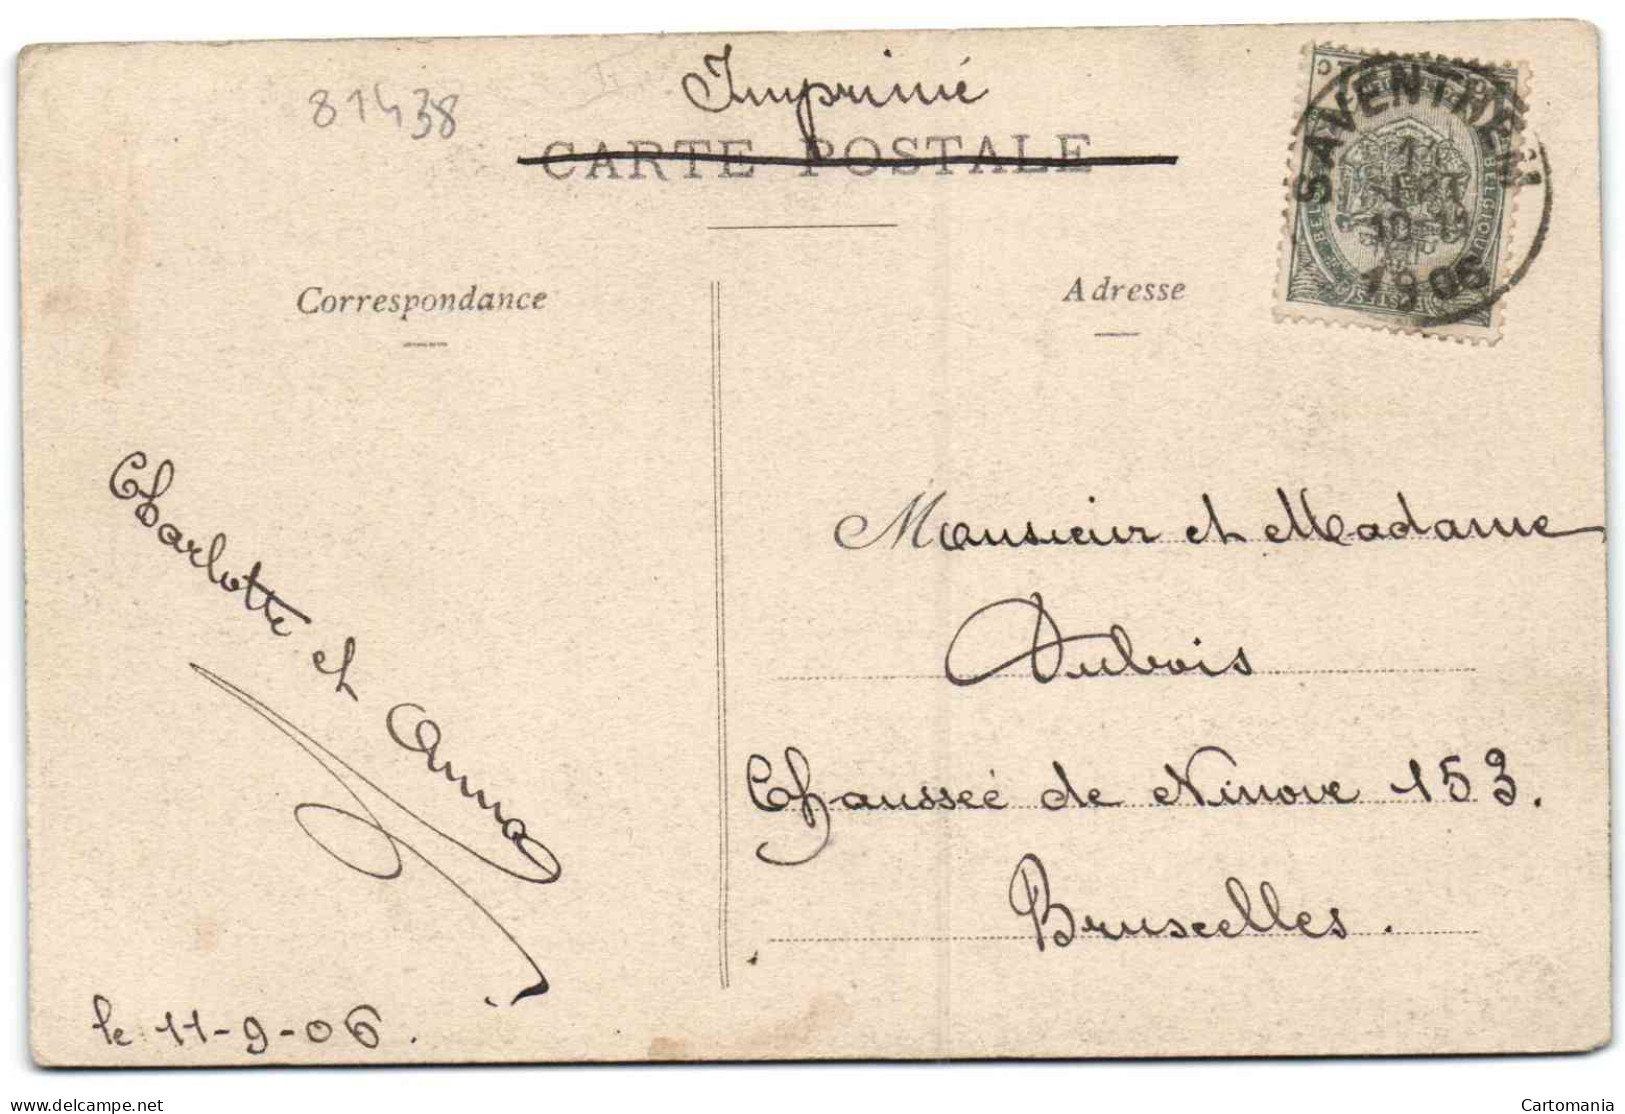 81438
Imprimé
CARTE POSTALE
Correspondance
Adresse
SAVENTHEM
10-11
1906
Charlotte et Anna
le 11-9-06.
Monsieur et Madame
Dubois
Chaussée de Ninove 153.
Bruxelles.
www.delcampe.net
Cartomania